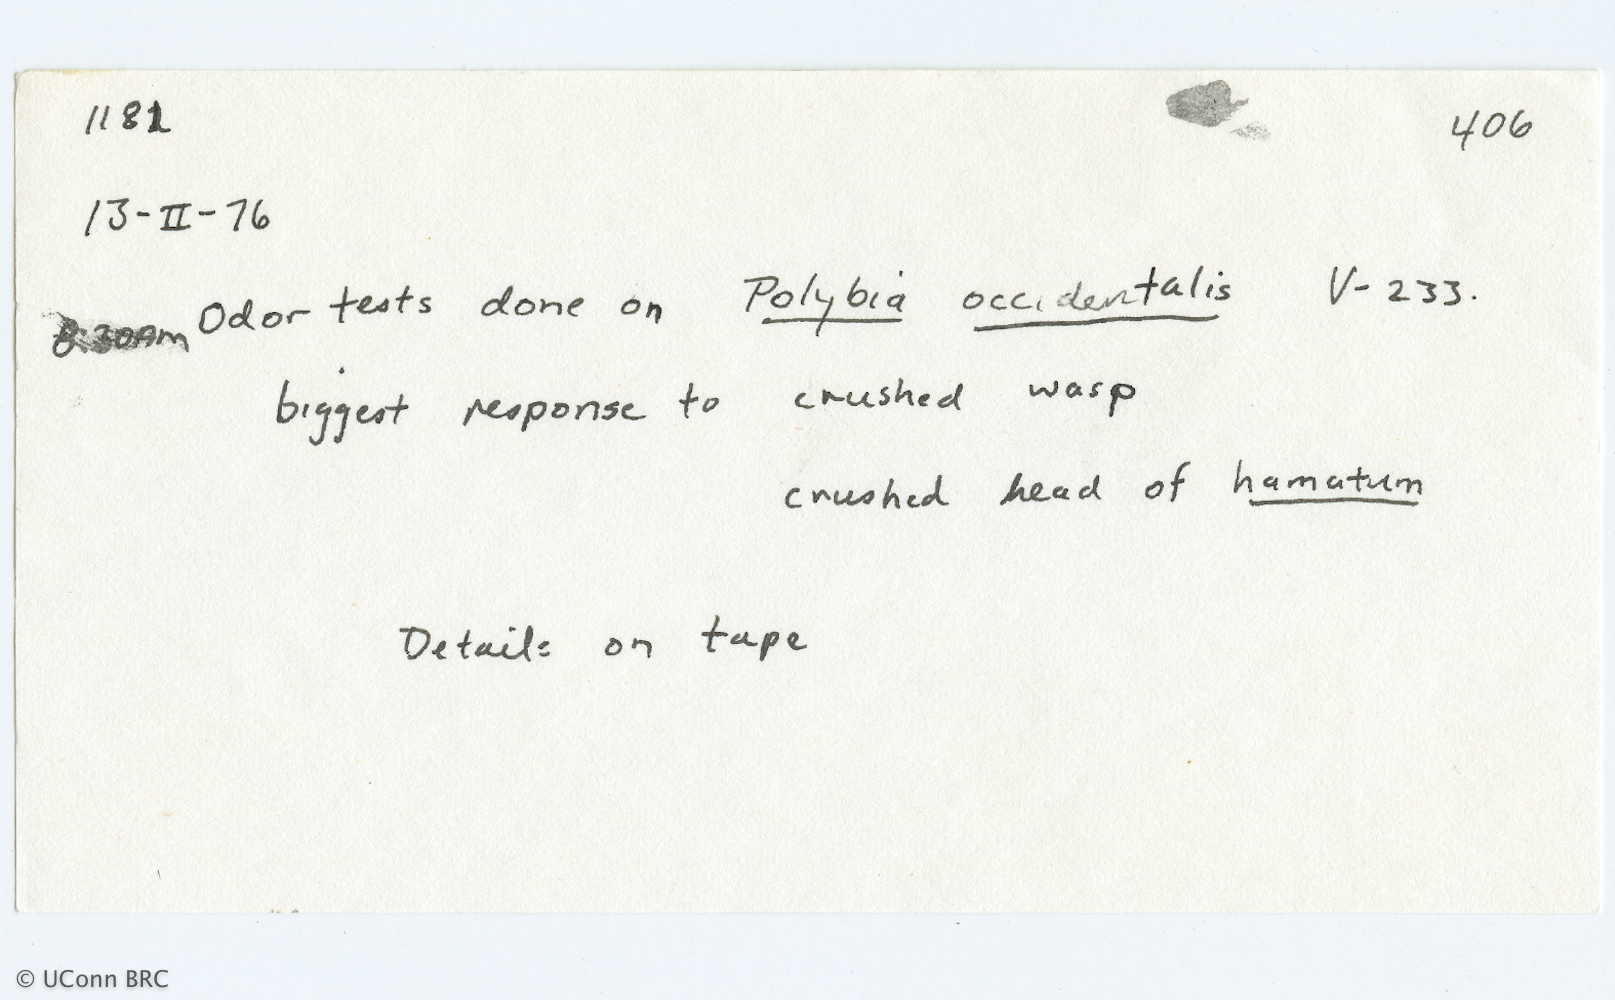 1181
406
13-II-76
8:30AM Odor tests done on Polybia occidentalis V-233.
biggest response to crushed wasp
crushed head of hamatum
Details on tape
© UConn BRC